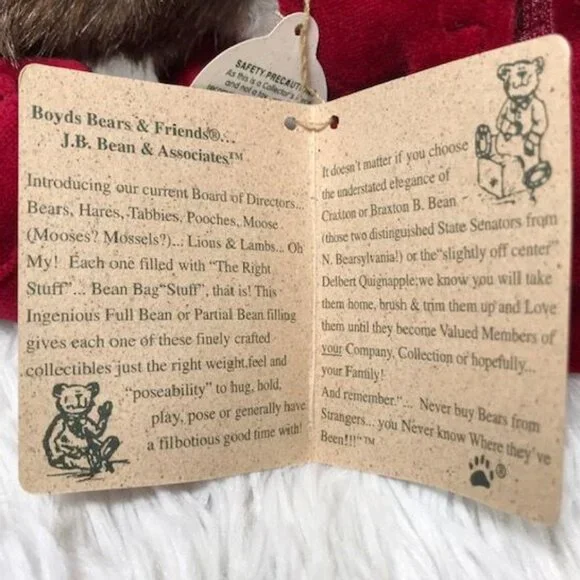 SAFETY PRECAUTION
As this is a Collector's
and not a toy
Boyds Bears & Friends®...
J.B. Bean & Associates™
Introducing our current Board of Directors...
Bears, Hares, Tabbies, Pooches, Moose
(Mooses? Mossels?)... Lious & Lambs... Oh
My! Each one filled with "The Right
Stuff"... Bean Bag "Stuff", that is! This
Ingenious Full Bean or Partial Bean filling
gives each one of these finely crafted
collectibles just the right weight,feel and
"poseability" to hug, hold,
play, pose or generally have
a filbotious good time with!
It doesn't matter if you choose
the understated elegance of
Craxton or Braxton B. Bean
(those two distinguished State Senators from
N. Bearsylvania!) or the "slightly off center"
Delbert Quignapple; we know you will take
them home, brush & trim them up and Love
them until they become Valued Members of
your Company, Collection or hopefully...
your Family!
And remember "... Never buy Bears from
Strangers... you Never know Where they've
Been!!!"™
®